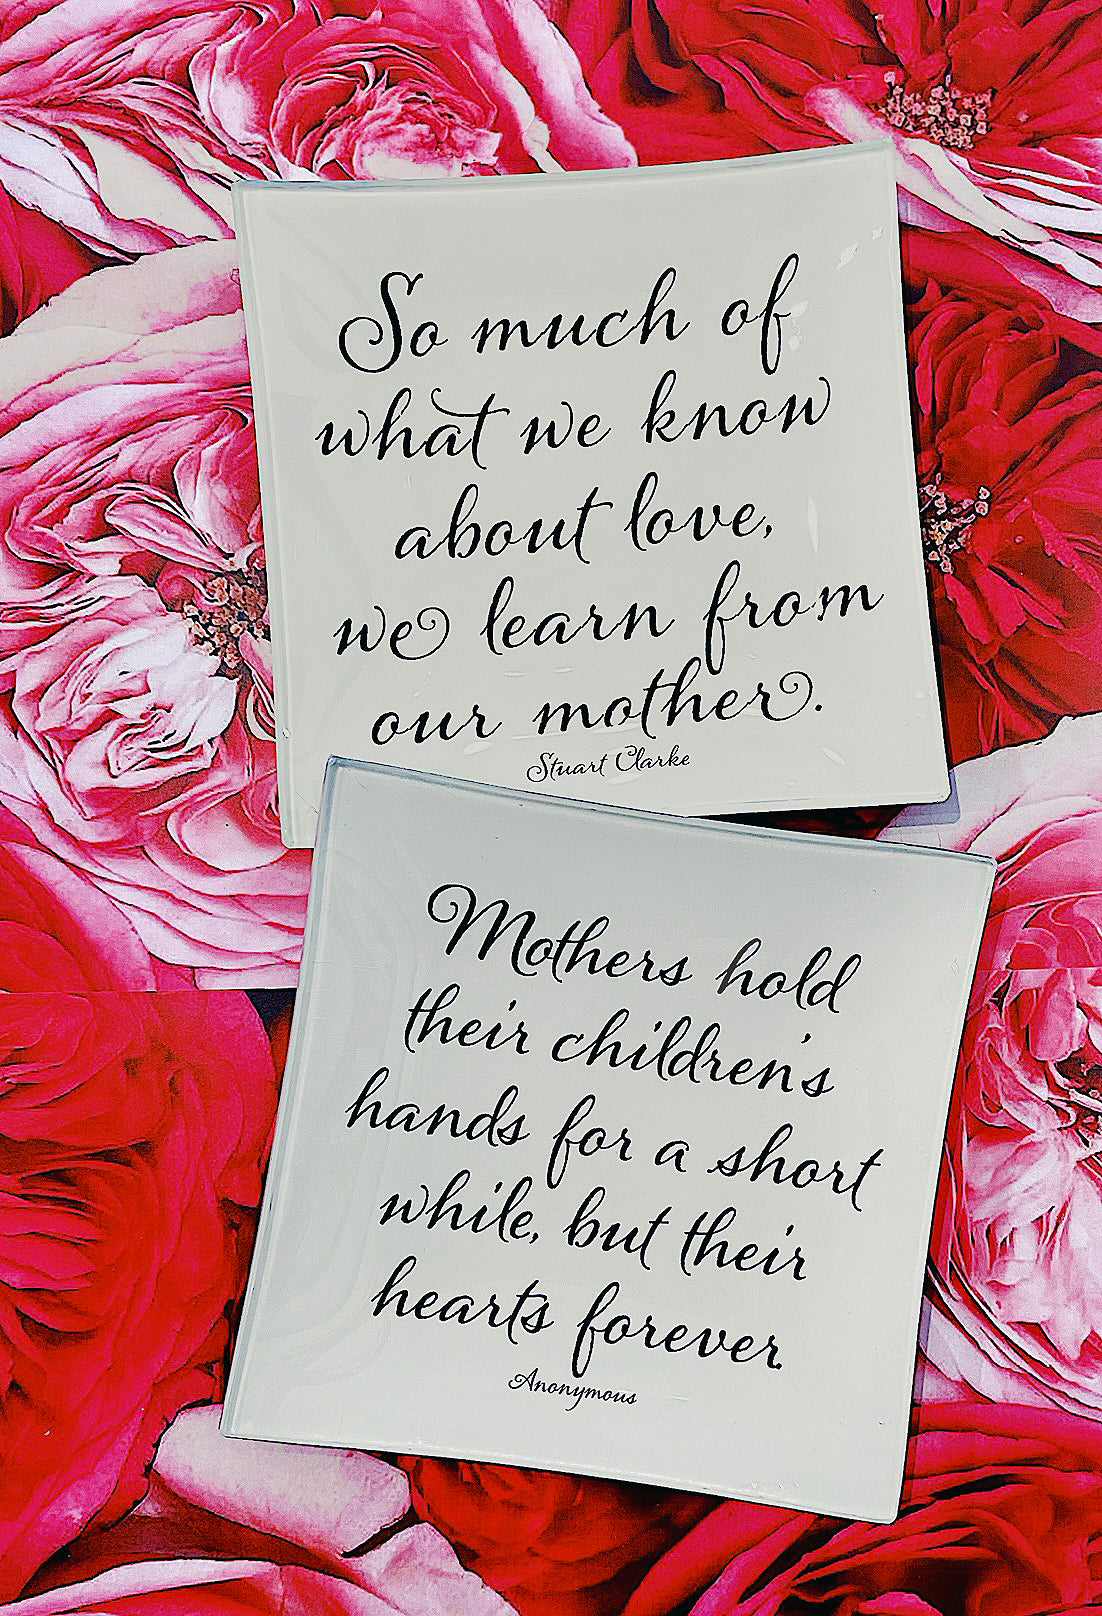 So much of
what we know
about love,
we learn from
our mother.
Stuart Clarke
Mothers hold
their children's
hands for a short
while, but their
hearts forever.
Anonymous